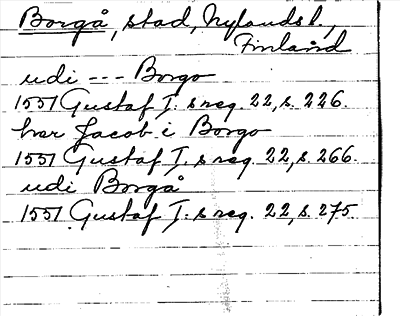 Borgå, stad, Nylands l.,
Finland
udi --- Borgo
1551 Gustaf I:s reg. 22, s. 226.
har Jacob i Borgo
1551 Gustaf I:s reg. 22, s. 266.
udi Borgå
1551 Gustaf I:s reg. 22, s. 275.